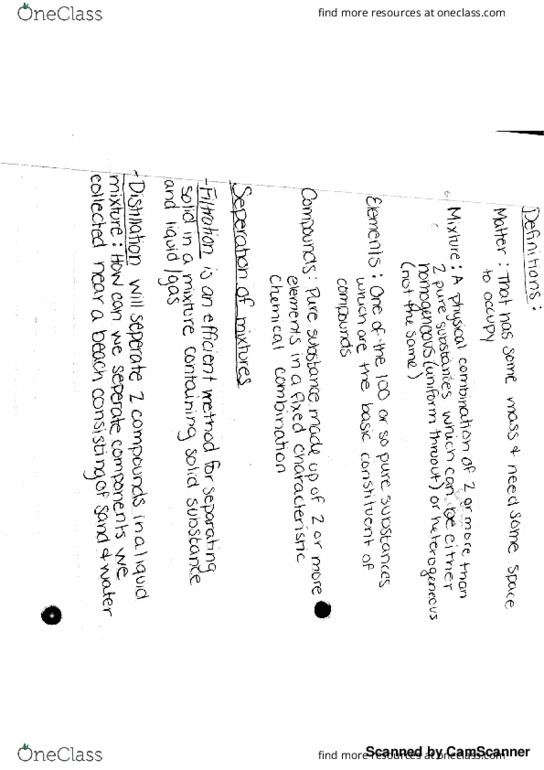 OneClass
find more resources at oneclass.com
Definitions:
Matter: That has some mass & need some space
to occupy
Mixture: A physical combination of 2 or more than
2 pure substances which can be either
homogenous (uniform throut) or heterogeneous
(not the same)
Elements: One of the 100 or so pure substances
which are the basic constituent of
compounds
Compounds: Pure substance made up of 2 or more
elements in a fixed characteristic
chemical combination
Seperation of mixtures
- Filtration is an efficient method for separating
solid in a mixture containing solid substance
and liquid/gas
- Distillation will seperate 2 compounds in a liquid
mixture: How can we seperate components we
collected near a beach consisting of sand & water
OneClass
find more resources at oneclass.com
Scanned by CamScanner